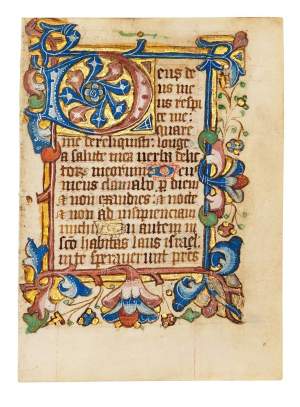 Deus de
us me
us respi
ce me:
quare
me dereliquisti: longe
a salute mea verba delic
torum meorum Deus
meus clamabo per diem
& non exaudies: & nocte
& non ad insipienciam
michi Tu autem in
sco habitas laus israel
in te speraverunt pres